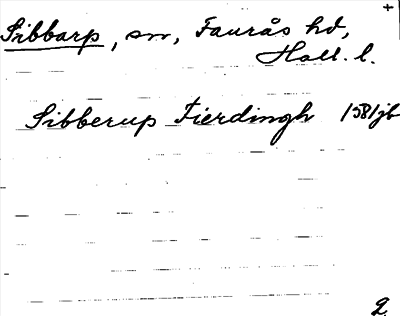 +
Sibbarp, sn, Faurås hd,
Hall. l.
Sibberup Fierdingh 1581 jb
2